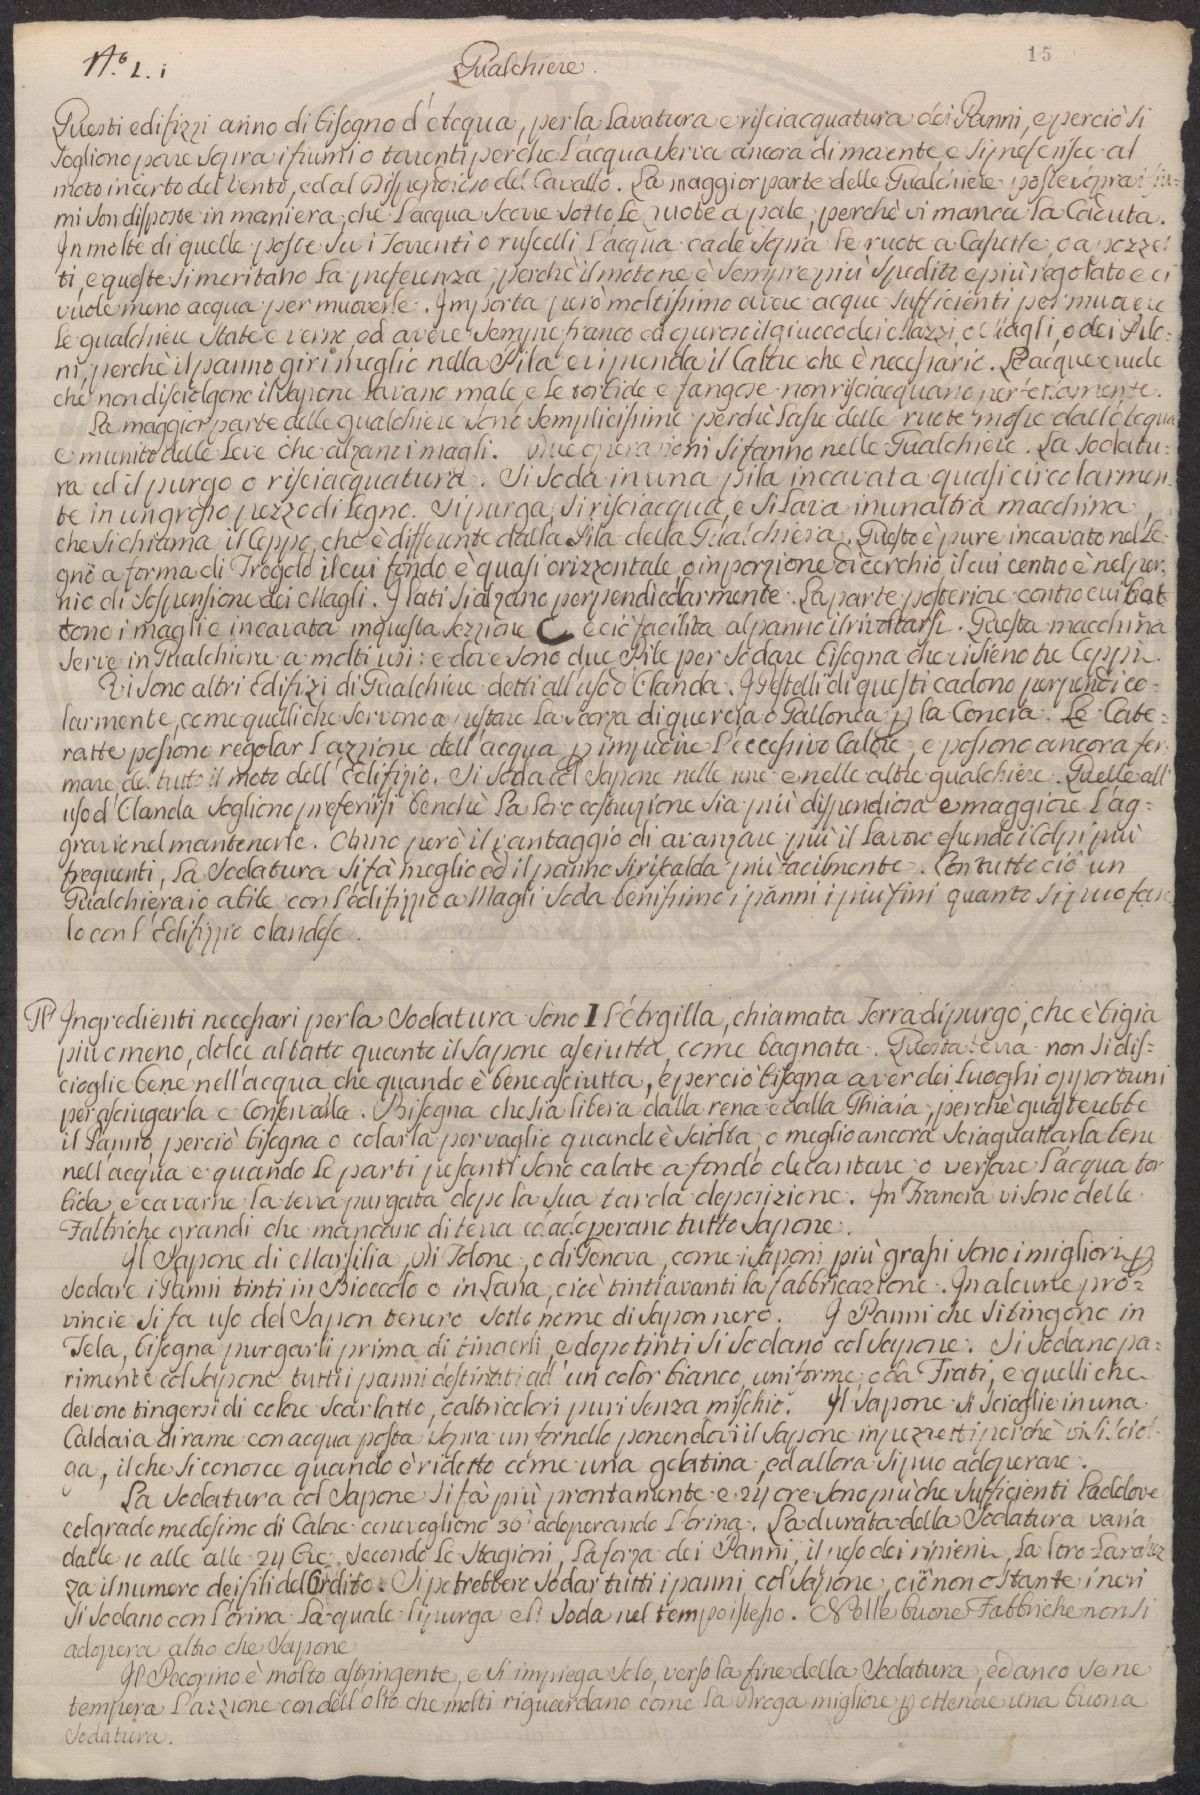 N.º L. i
Gualchiere.
15
Questi edifizzi anno di bisogno d'Acqua, per la Lavatura e risciacquatura dei Panni, e perciò si
sogliono porre sopra i fiumi o torrenti perche l'acqua serva ancora di movente e si preferisce al
moto incerto del Vento, ed al Dispendioso del Cavallo. La maggior parte delle Gualchiere poste sopra i fiu-
mi son disposte in maniera, che l'acqua scorre sotto le ruote a pale, perchè vi manca la Caduta.
In molte di quelle poste su i Torrenti o ruscelli l'acqua cade sopra le ruote a Casette, o a pozzet
ti, e queste si meritano la preferenza, perchè il moto ne è sempre più spedito e più regolato e ci
vuole meno acqua per muoverle. Importa però moltissimo avere acque sufficienti per muovere
le gualchiere State e verno, ed avere sempre franco ed eguroso il giuoco dei Mazzi, o Magli, o dei Pilo-
ni, perchè il panno giri meglio nella Pila e vi prenda il Calore che è necessario. Le acque crude
che non disciolgono il Sapone lavano male, e le torbide e fangose non risciacquano perfettamente.
La maggior parte delle gualchiere sono semplicissime perchè l'asse delle ruote mosse dall'Acqua
è munito delle Leve che alzano i magli. Due operazioni si fanno nelle Gualchiere. La sodatu-
ra ed il purgo o risciacquatura. Si soda in una pila incavata quasi circolarmen
te in un grosso pezzo di Legno. Si purga, si risciacqua, e si Lava in un altra macchina,
che si chiama il Ceppo, che è differente dalla Pila della Gualchiera. Questo è pure incavato nel Le-
gno a forma di Trogolo il cui fondo è quasi orizzontale, o in porzione di cerchio il cui centro è nel per-
nio di sospensione dei Magli. I lati si alzano perpendicolarmente. La parte posteriore contro cui bat
tono i magli è incavata in questa sezzione C e ciò facilita al panno il rivoltarsi. Questa macchina
serve in Gualchiera a molti usi: e dove sono due Pile per sodare bisogna che vi sieno tre Ceppi.
Vi sono altri Edifizi di Gualchiere detti all'uso d'Olanda. I Pestelli di questi cadono perpendico-
larmente, come quelli che servono a pestare la scorza di quercia o Gallonea p la Concia. Le Cate-
ratte possono regolar l'azzione dell'acqua p impedire l'eccessivo Calore, e possono ancora fer-
mare del tutto il moto dell'Edifizio. Si soda col Sapone nelle une e nelle altre gualchiere. Quelle all'
uso d'Olanda sogliono preferirsi benchè la loro costruzione sia più dispendiosa e maggiore l'ag-
gravio nel mantenerle. Anno però il vantaggio di avanzare più il Lavoro essendo i Colpi più
frequenti, la sodatura si fà meglio ed il panno si riscalda più facilmente. Con tutto ciò un
Gualchieraio abile con l'edifizzio a Magli soda benissimo i panni i più fini quanto si può far
lo con l'Edifizzio olandese.
Gl' Ingredienti necessari per la Sodatura sono 1 L'Argilla, chiamata Terra di purgo, che è bigia
più o meno, dolce al tatto quanto il Sapone asciutta, come bagnata. Questa terra non si dis-
cioglie bene nell'acqua che quando è bene asciutta, e perciò bisogna aver dei luoghi opportuni
per asciugarla e Conservarla. Bisogna che sia libera dalla rena e dalla Ghiaia, perchè guasterebbe
il Panno, perciò bisogna o colarla per vaglio quando è sciolta, o meglio ancora sciaguattarla bene
nell'acqua e quando le parti pesanti sono calate a fondo decantare o versare l'acqua tor
bida, e cavarne la terra purgata dopo la sua tarda deposizione. In Francia vi sono delle
Fabbriche grandi che mancano di terra ed adoperano tutto Sapone.
Il Sapone di Marsilia, Di Tolone, o di Genova, come i saponi più grassi sono i migliori p
sodare i Panni tinti in Bioccolo o in Lana, cioè tinti avanti la fabbricazione. In alcune pro-
vincie si fa uso del Sapon tenero sotto nome di Sapon nero. I Panni che si tingono in
Tela, bisogna purgarli prima di tingerli, e dopo tinti si sodano col sapone. Si sodano pa-
rimente col sapone tutti i panni destinati ad un color bianco, uniforme, e da Frati, e quelli che
devono tingersi di colore scarlatto, ed altri colori puri senza mischio. Il sapone si scioglie in una
Caldaia di rame con acqua posta sopra un fornello ponendovi il sapone in pezzetti perchè vi si sciol-
ga, il che si conosce quando è ridotto come una gelatina, ed allora si può adoperare.
La sodatura col Sapone si fà più prontamente e 24 ore sono più che sufficienti laddove
col grado medesimo di Calore ce ne vogliono 36 adoperando l'orina. La durata della Sodatura varia
dalle 10 alle alle 24 Ore secondo le Stagioni, la forza dei Panni, il peso dei ripieni, la loro Larghez
za il numero dei fili dell'Ordito. Si potrebbero sodar tutti i panni col Sapone, ciò non ostante i neri
si sodano con l'orina la quale li purga e li soda nel tempo istesso. Nelle buone Fabbriche non si
adopera altro che Sapone
Il Pecorino è molto astringente, e si impiega solo, verso la fine della Sodatura, ed anco se ne
tempera l'azzione con dell'olio che molti riguardano come la Droga migliore p ottenere una buona
Sodatura.